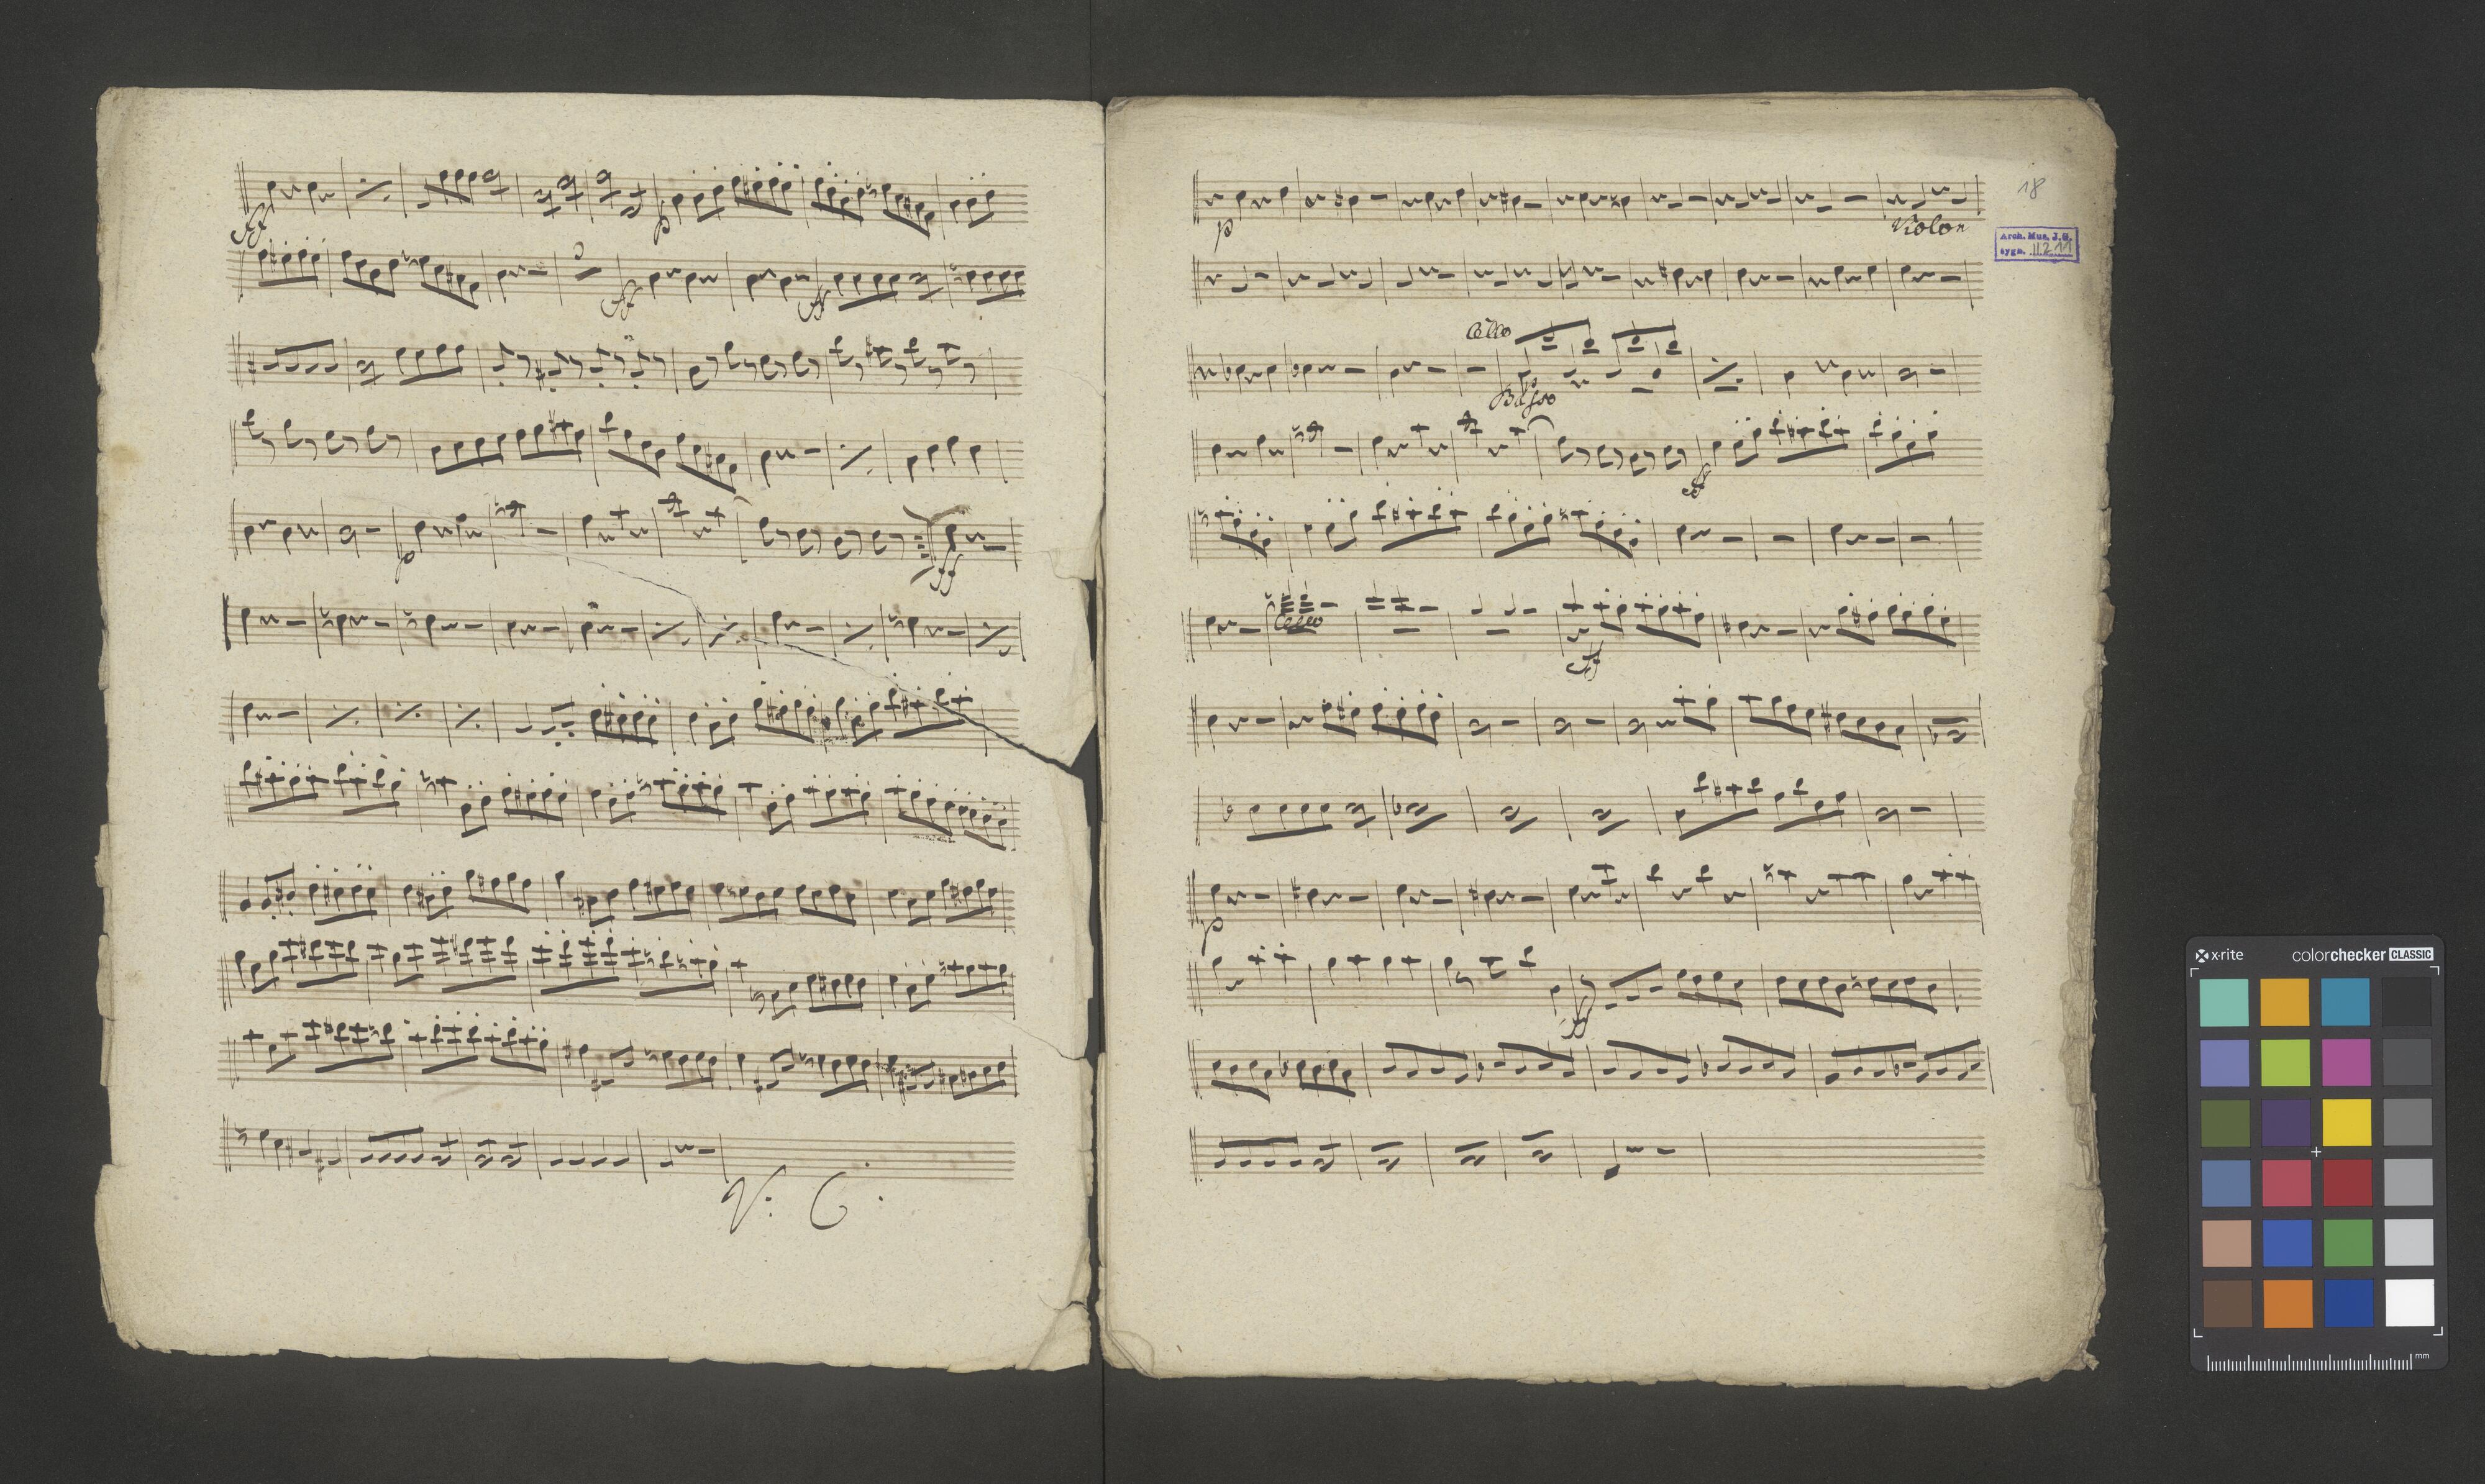 ff
p
3
ff
ff
p
ff
V: C.
18
Arch. Mus. J.G.
sygn. II.2.11
p
Violon
Cello
Basso
ff
Cello
ff
p
ff
x-rite
colorchecker CLASSIC
mm